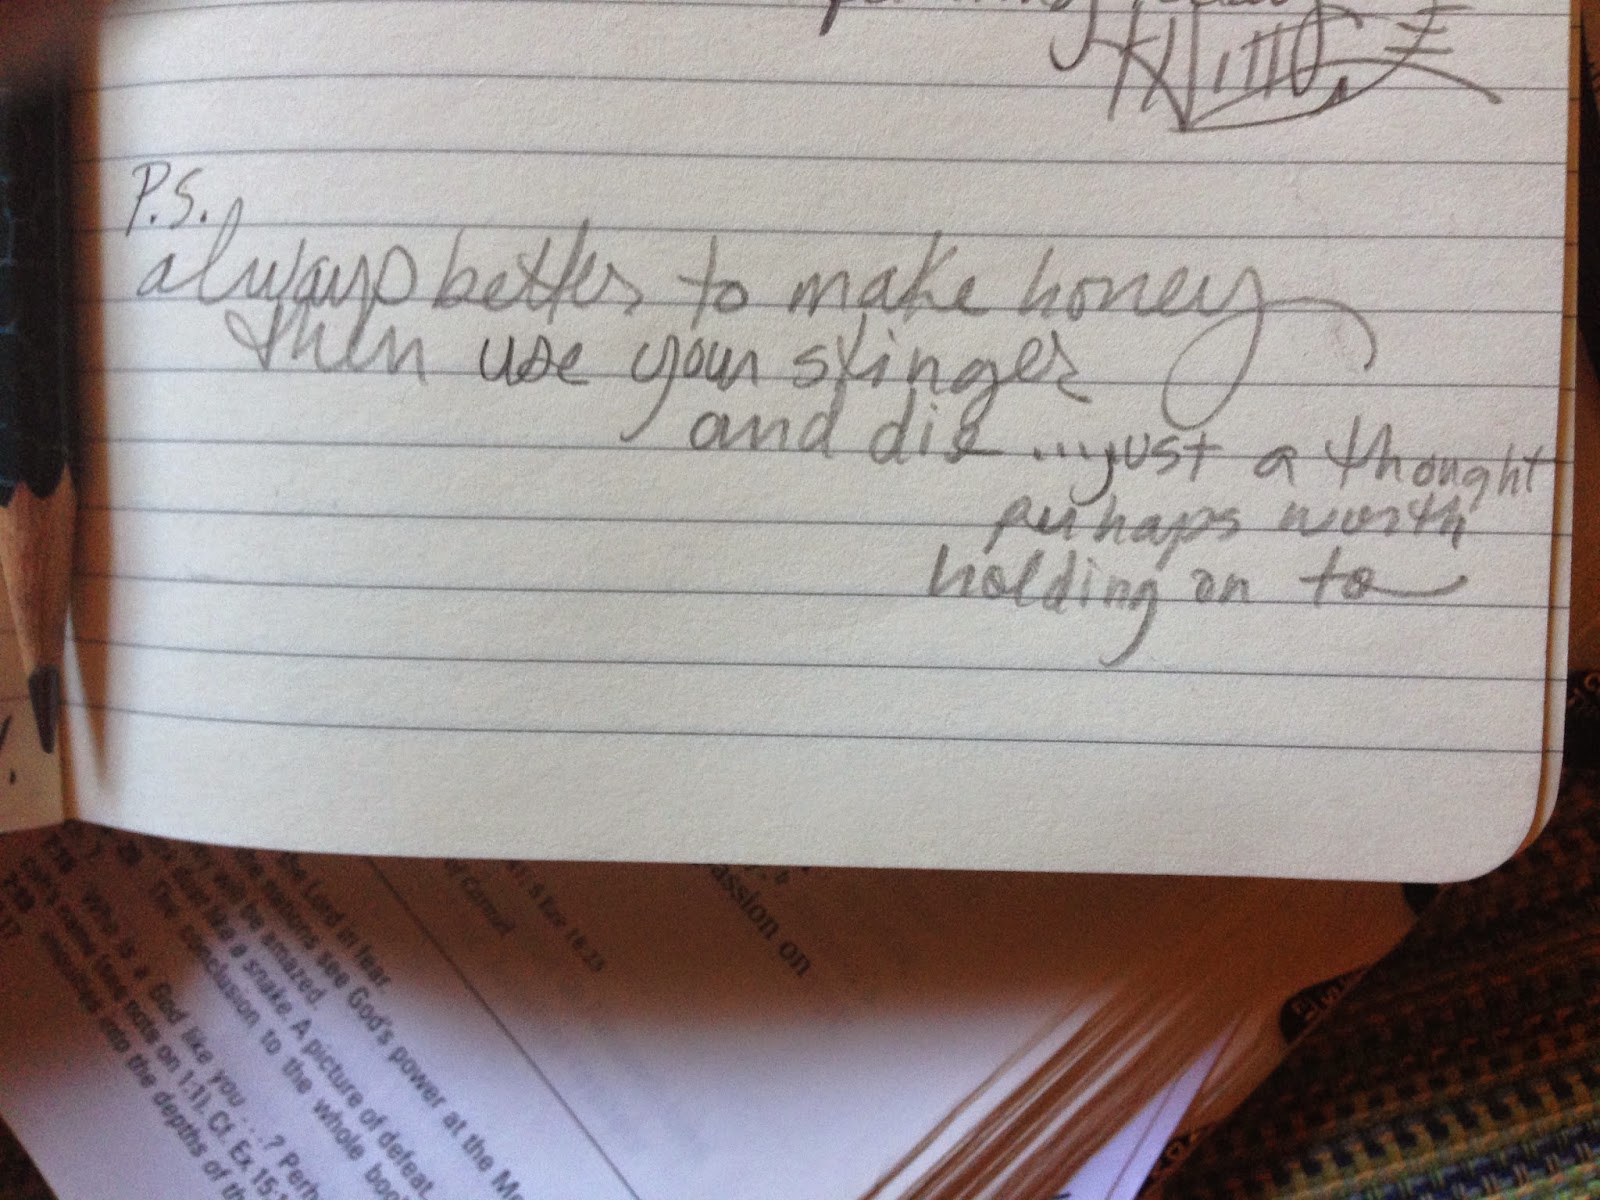 P.S.
always better to make honey
then use your stinger
and die ... just a thought
perhaps worth
holding on to
assion on
1:5 Ror 16:25
of Carmel
the Lord in fear.
the nations see God's power at the
will be amazed.
dust like a snake. A picture of defeat.
The conclusion to the whole
7:18 Who is a God like you . . . ? Perh
(see note on 1:1). Cf. Ex 15:1
7:19 into the depths of th
7:17